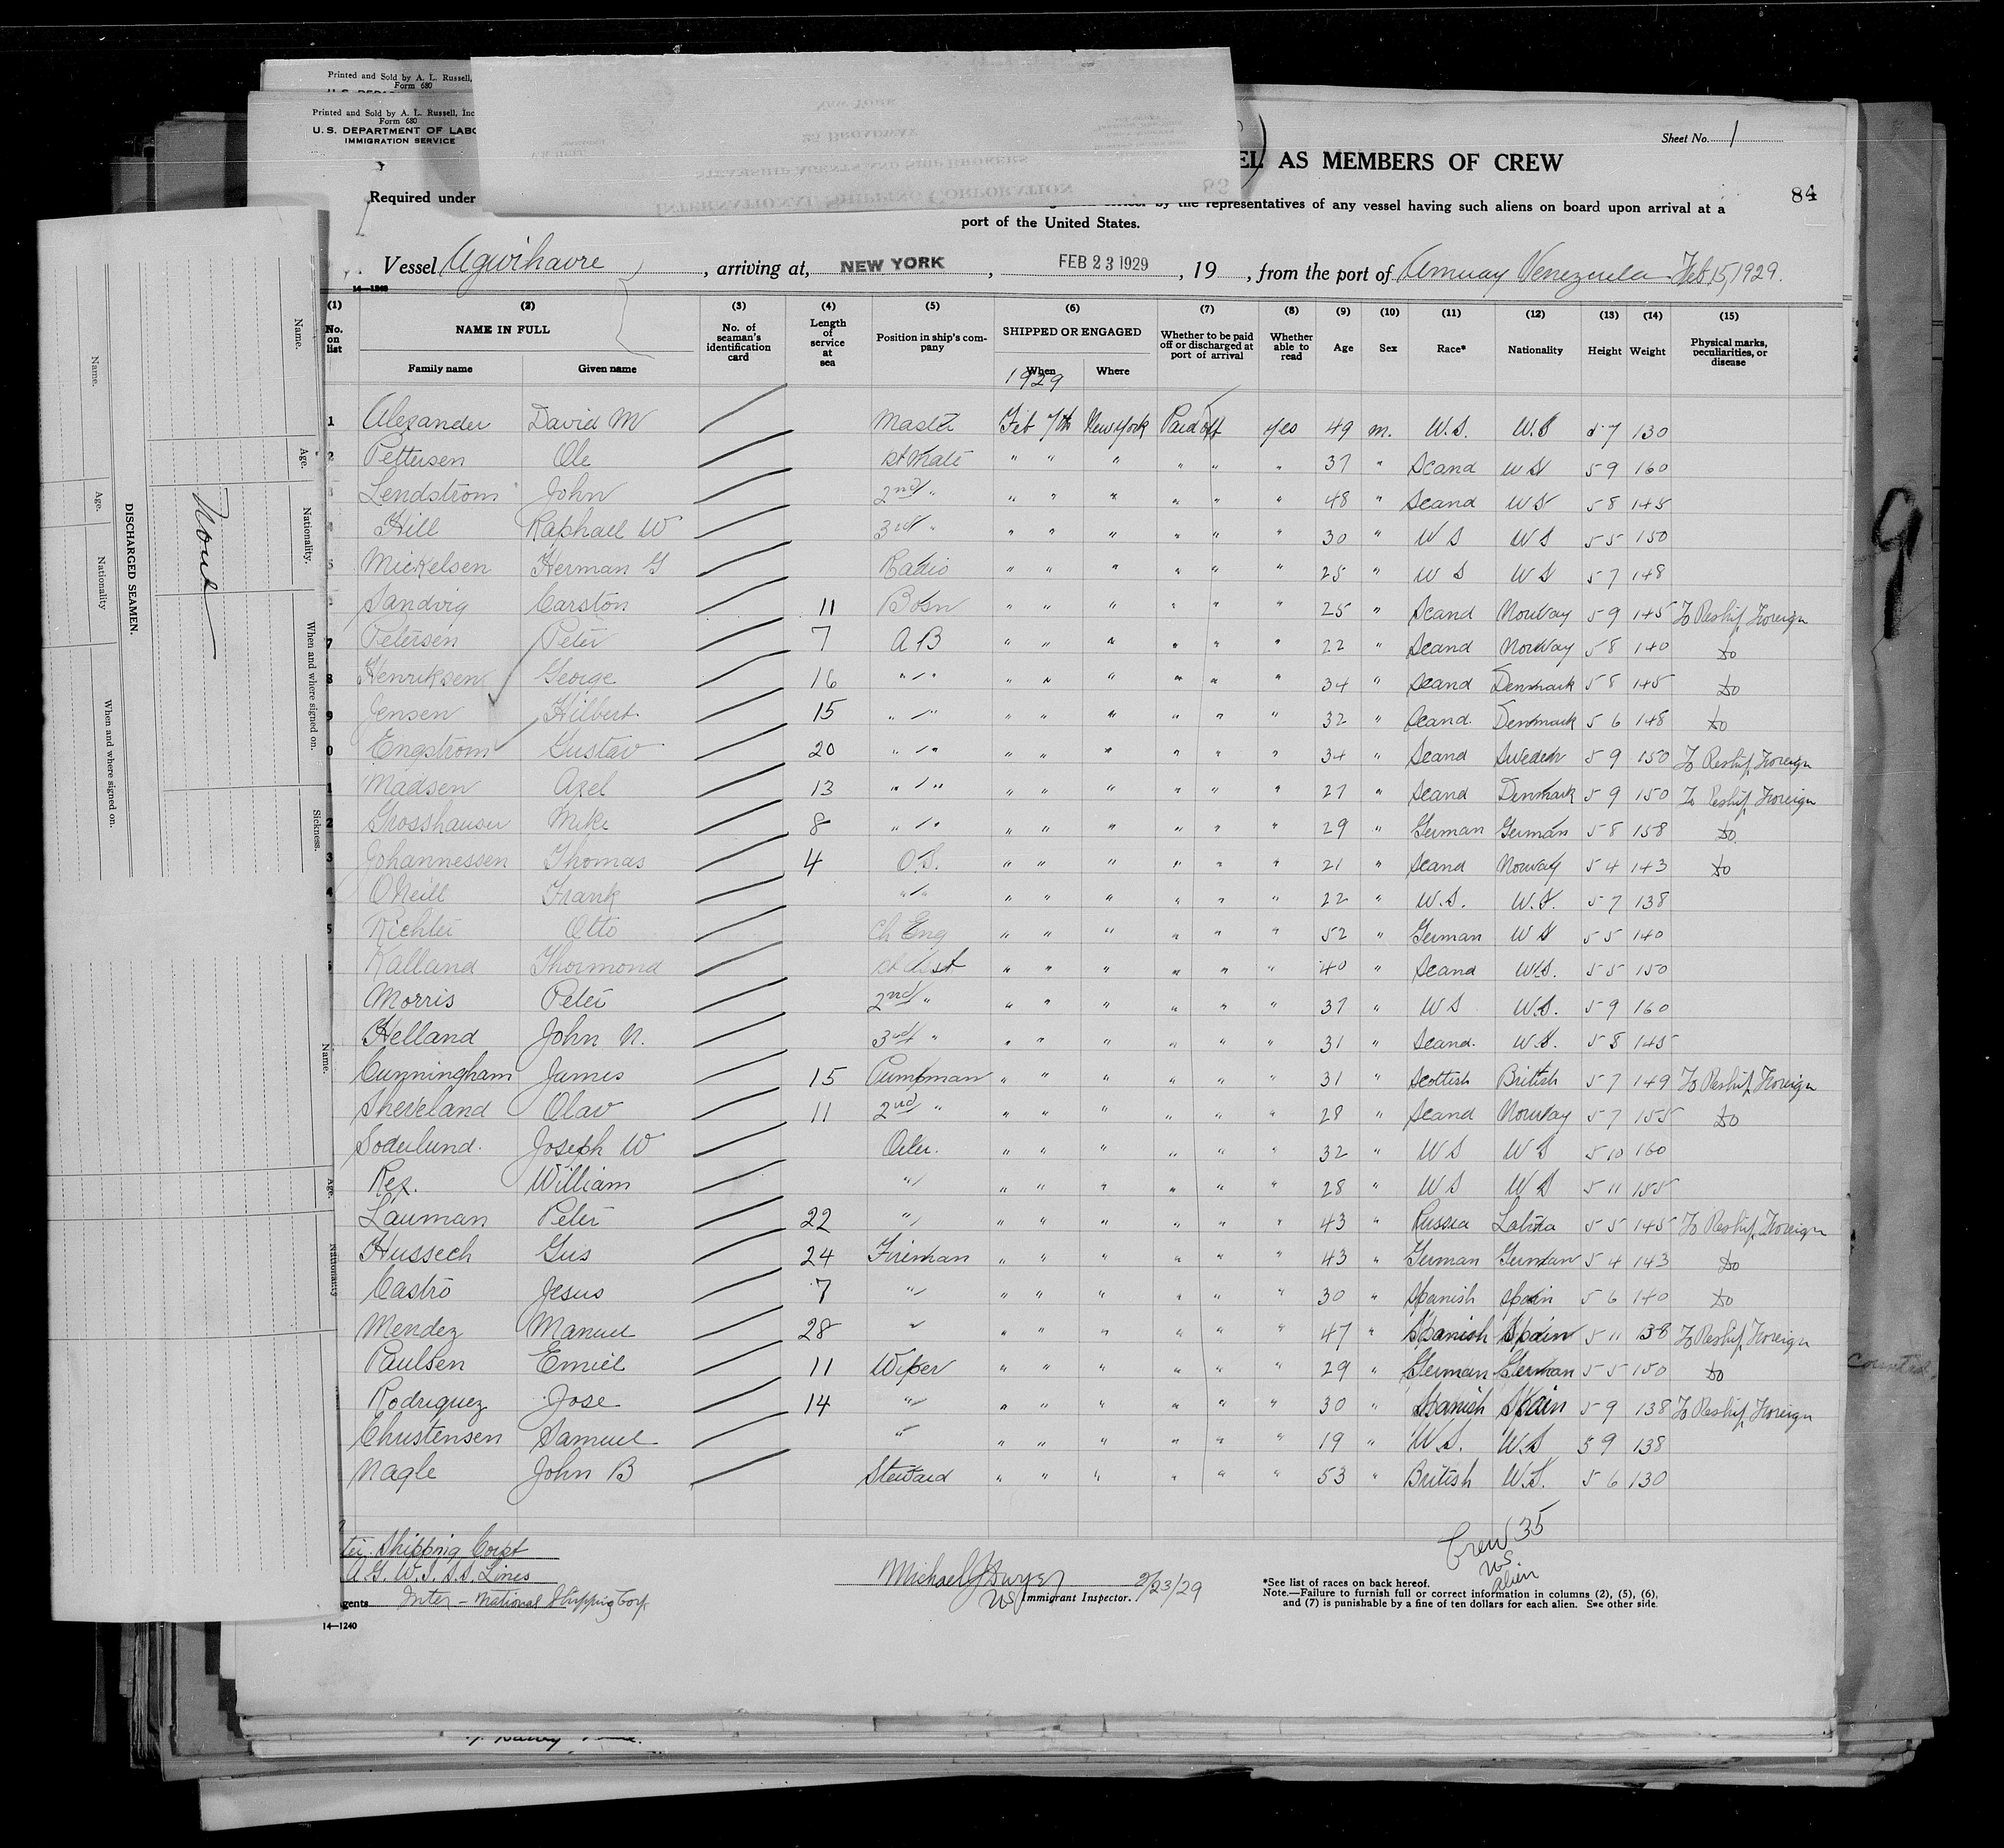 Printed and Sold by A. L. Russell,
Form 680
Printed and Sold by A. L. Russell, Inc
Form 680
U.S. DEPARTMENT OF LABO
IMMIGRATION SERVICE
NEW YORK
25 BROADWAY
STEAMSHIP AGENTS AND SHIP BROKERS
INTERNATIONAL SHIPPING CORPORATION
Sheet No. 1
EL AS MEMBERS OF CREW
84
Required under
by the representatives of any vessel having such aliens on board upon arrival at a
port of the United States.
Vessel Agwihavre, arriving at, NEW YORK, FEB 23 1929, 19, from the port of Amuay Venezuela Feb 15, 1929.
14-1240
(1) (2) (3) (4) (5) (6) (7) (8) (9) (10) (11) (12) (13) (14) (15)
No. on list NAME IN FULL No. of seaman's identification card Length of service at sea Position in ship's company SHIPPED OR ENGAGED Whether to be paid off or discharged at port of arrival Whether able to read Age Sex Race* Nationality Height Weight Physical marks, peculiarities, or disease
Family name Given name When Where
1929
1 Alexander David M Master Feb 7th New York Paid off yes 49 m. U.S. U.S 5 7 130
2 Pettersen Ole 1st Mate " " " " " " 37 " Scand U S 5 9 160
Lendstrom John 2nd " " " " " " " 48 " Scand U S 5 8 145
Hill Raphael W 3rd " " " " " " " 30 " U S U S 5 5 150
Mickelsen Herman G Radio " " " " " " 25 " U S U S 5 7 148
Sandvig Carston 11 Bosn " " " " " " 25 " Scand Norway 5 9 145 To Reship Foreign
7 Petersen Peter 7 A B " " " " " " 22 " Scand Norway 5 8 140 do
8 Henriksen George 16 " " " " " " " " 34 " Scand Denmark 5 8 145 do
9 Jensen Hilbert 15 " " " " " " " " 32 " Scand. Denmark 5 6 148 do
0 Engstrom Gustav 20 " " " " " " " " 34 " Scand Sweden 5 9 150 To Reship Foreign
1 Madsen Axel 13 " " " " " " " " 27 " Scand Denmark 5 9 150 To Reship Foreign
2 Grosshauser Mike 8 " " " " " " " " 29 " German German 5 8 158 do
3 Johannessen Thomas 4 O.S. " " " " " " 21 " Scand Norway 5 4 143 do
4 ONeill Frank " " " " " " " " 22 " U.S. U.S. 5 7 138
5 Richter Otto Ch Eng " " " " " " 52 " German U S 5 5 140
Kalland Thormond 1st Asst " " " " " " 40 " Scand U.S. 5 5 150
Morris Peter 2nd " " " " " " " 37 " U S U.S. 5 9 160
Helland John N. 3rd " " " " " " " 31 " Scand. U.S. 5 8 145
Cunningham James 15 Pumpman " " " " " " 31 " Scottish British 5 7 149 To Reship Foreign
Sheveland Olav 11 2nd " " " " " " " 28 " Scand Norway 5 7 155 do
Soderlund. Joseph W Oiler. " " " " " " 32 " U S U S 5 10 160
Rex. William " " " " " " " 28 " U S U S 5 11 155
Lauman Peter 22 " " " " " " " 43 " Russia Latvia 5 5 145 To Reship Foreign
Hussech Gus 24 Fireman " " " " " " 43 " German German 5 4 143 do
Castro Jesus 7 " " " " " " " 30 " Spanish Spain 5 6 140 do
Mendez Manuel 28 " " " " " " " 47 " Spanish Spain 5 11 138 To Reship Foreign
Paulsen Emiel 11 Wiper " " " " " " 29 " German German 5 5 150 do
Rodriguez Jose 14 " " " " " " " 30 " Spanish Spain 5 9 138 To Reship Foreign
Christensen Samuel " " " " " " " 19 " U.S. U.S 5 9 138
Nagle John B Steward " " " " " " 53 " British U.S. 5 6 130
Crew 35
US
alien
ter. Shipping Corpt
A.G.W.I. S.S. Lines
gents Inter-national Shipping Corp.
Michael J Dwyer 2/23/29
US Immigrant Inspector.
*See list of races on back hereof.
Note.—Failure to furnish full or correct information in columns (2), (5), (6),
and (7) is punishable by a fine of ten dollars for each alien. See other side.
14—1240
DISCHARGED SEAMEN.
Name.
Age.
Nationality
When and where signed on.
Name.
Age.
Nationality.
When and where signed on.
Sickness.
None
Name.
Age.
Nationality
9
counted